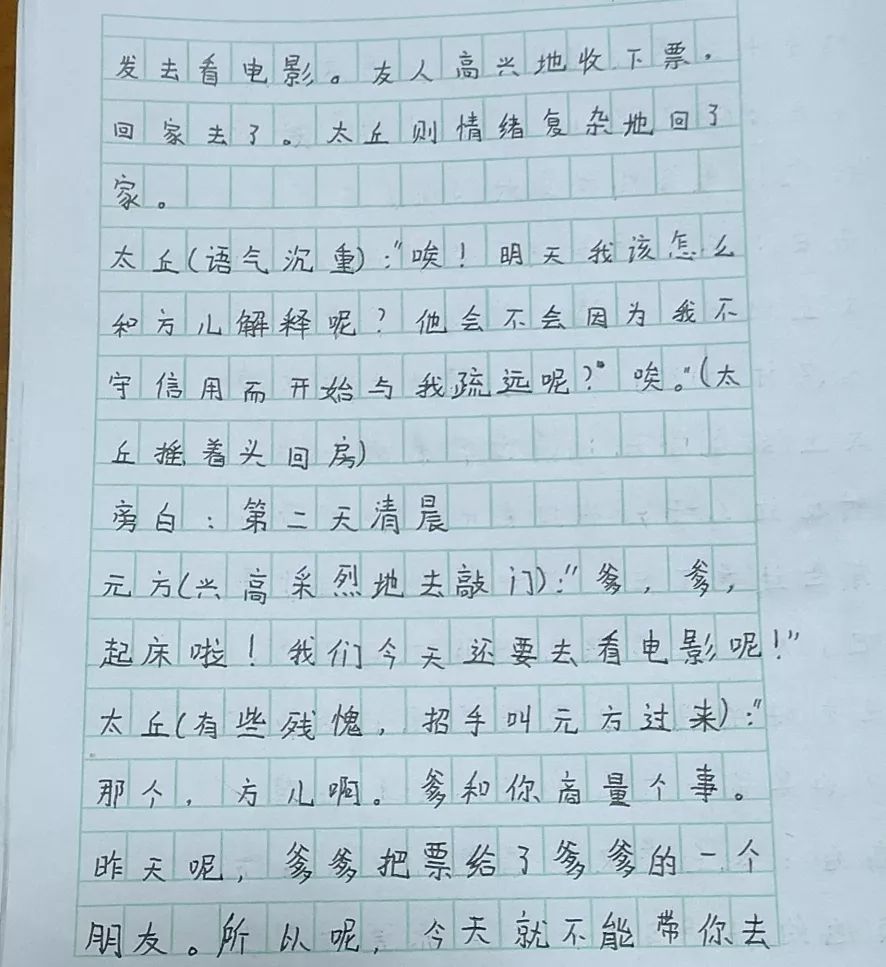 发去看电影。友人高兴地收下票，
回家去了。太丘则情绪复杂地回了
家。
太丘(语气沉重):"唉！明天我该怎么
和方儿解释呢？他会不会因为我不
守信用而开始与我疏远呢？"唉。"(太
丘摇着头回房)
旁白：第二天清晨
元方(兴高采烈地去敲门):"爹，爹，
起床啦！我们今天还要去看电影呢！"
太丘(有些残愧，招手叫元方过来):"
那个，方儿啊。爹和你商量个事。
昨天呢，爹爹把票给了爹爹的一个
朋友。所以呢，今天就不能带你去